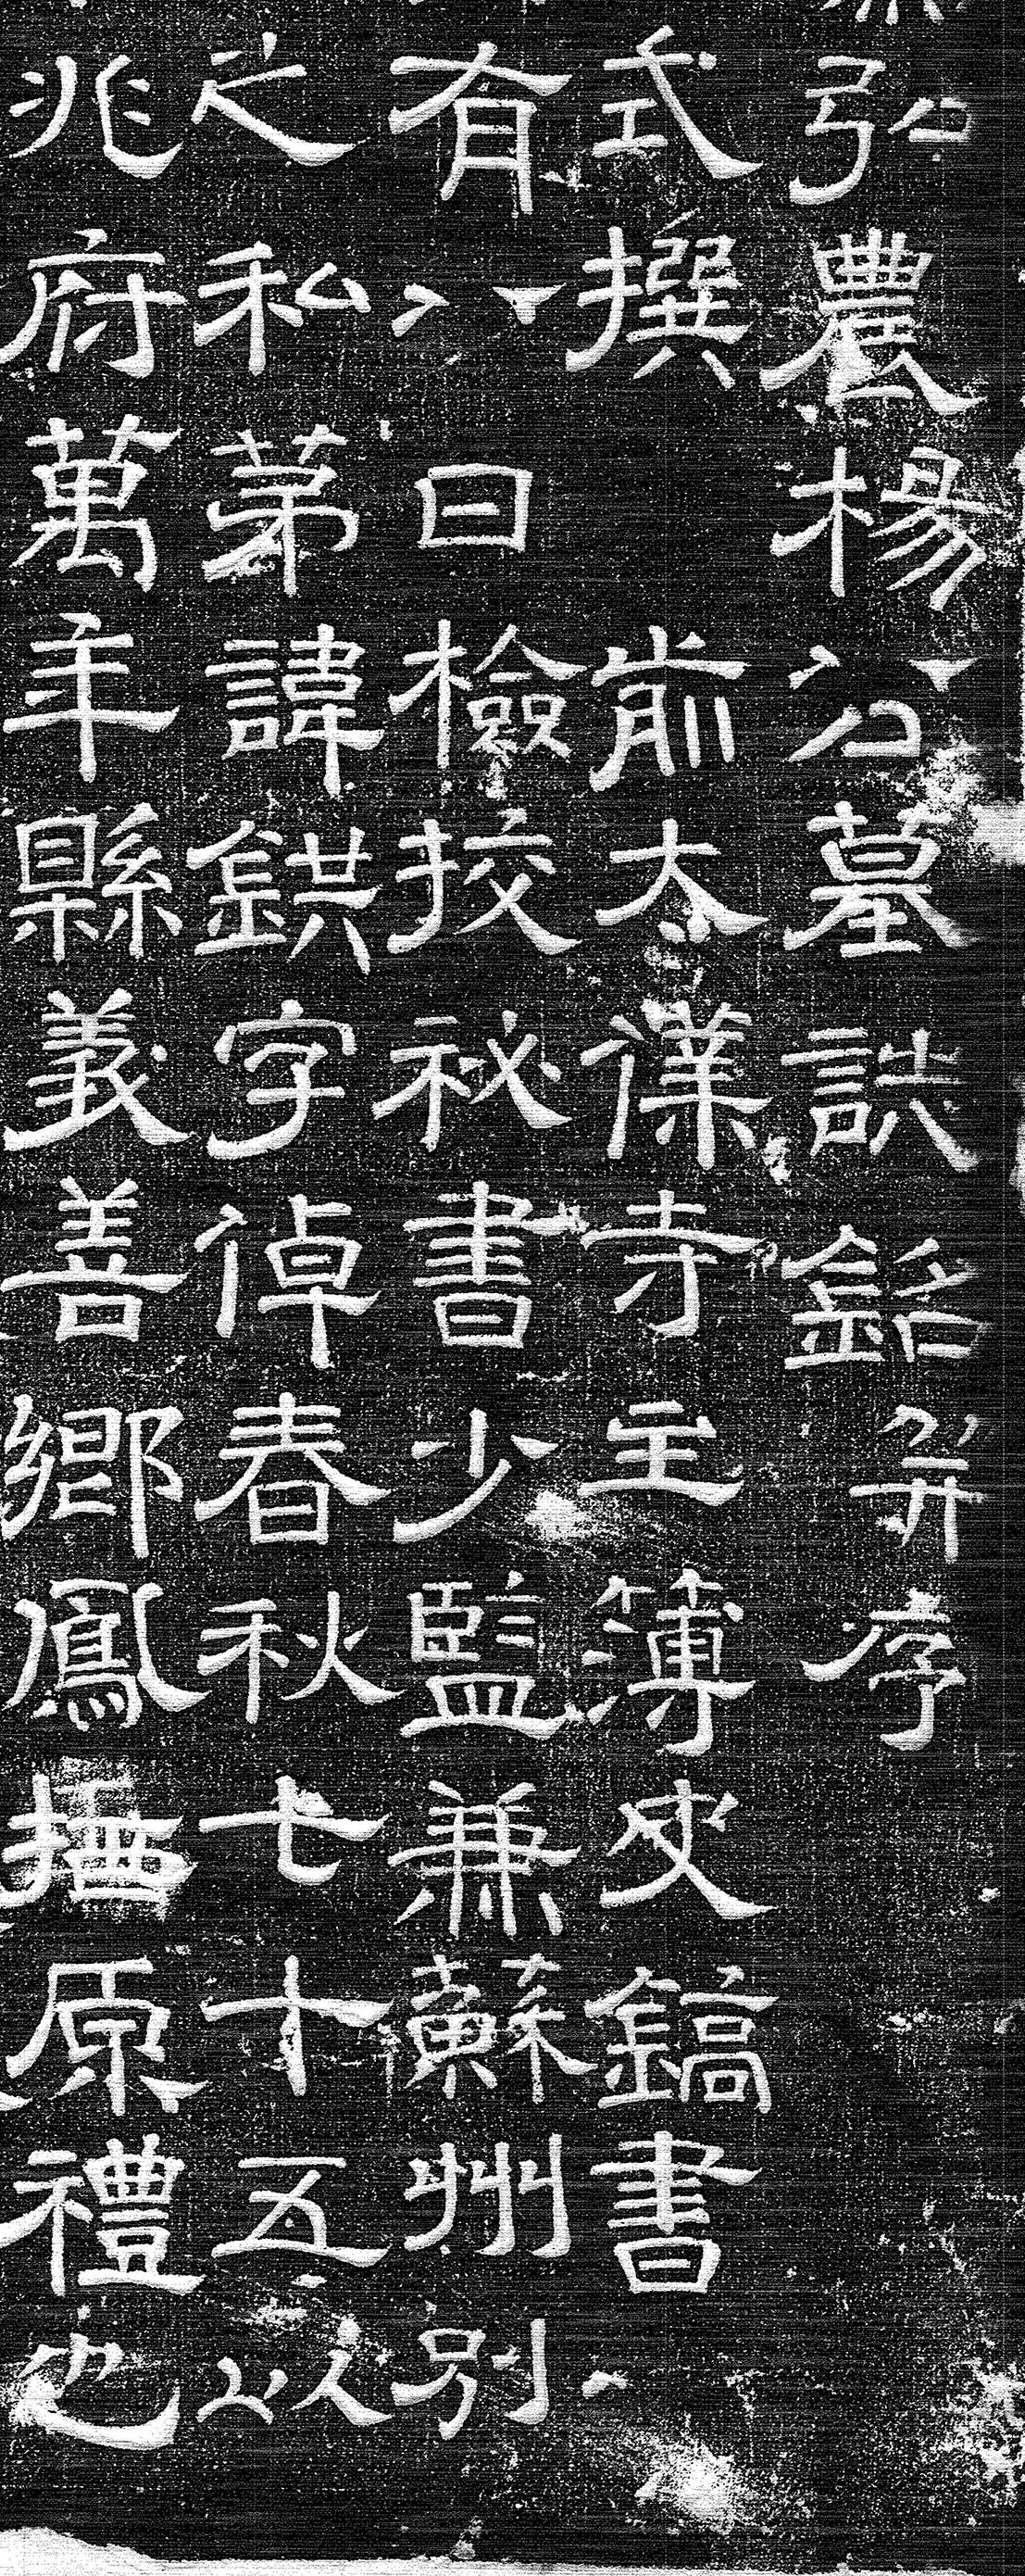 弘農楊公墓誌銘并序
式撰 前太僕寺主簿史鎬書
有八日檢挍秘書少監兼蘇州別
之私第諱鉷字倬春秋七十五以
兆府萬年縣義善鄉鳳栖原禮也